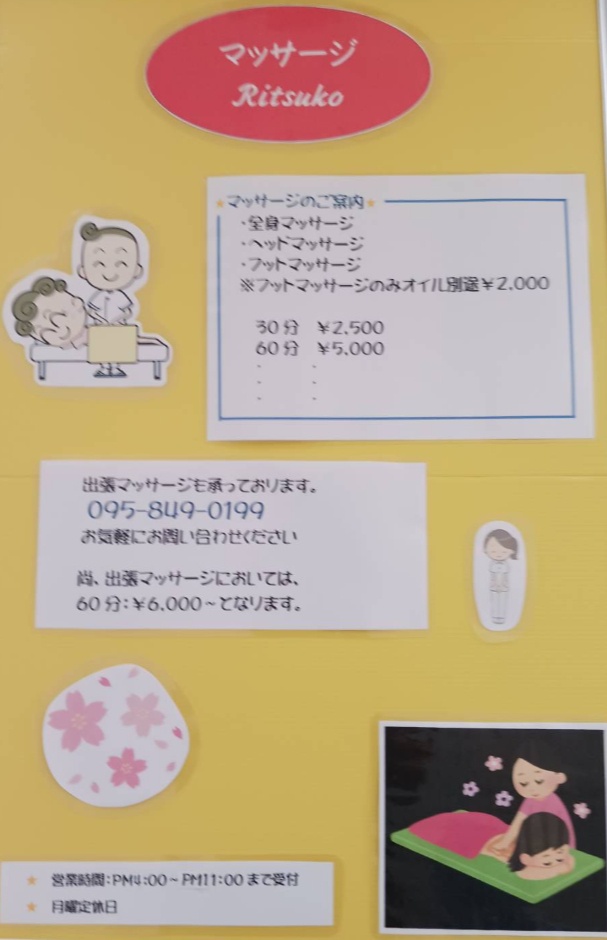 マッサージ
Ritsuko
★マッサージのご案内★
・全身マッサージ
・ヘッドマッサージ
・フットマッサージ
※フットマッサージのみオイル別途¥2,000
30分 ¥2,500
60分 ¥5,000
・ ・
・ ・
・ ・
出張マッサージも承っております。
095-849-0199
お気軽にお問い合わせください
尚、出張マッサージにおいては、
60分:¥6,000~となります。
★ 営業時間:PM4:00~PM11:00まで受付
★ 月曜定休日